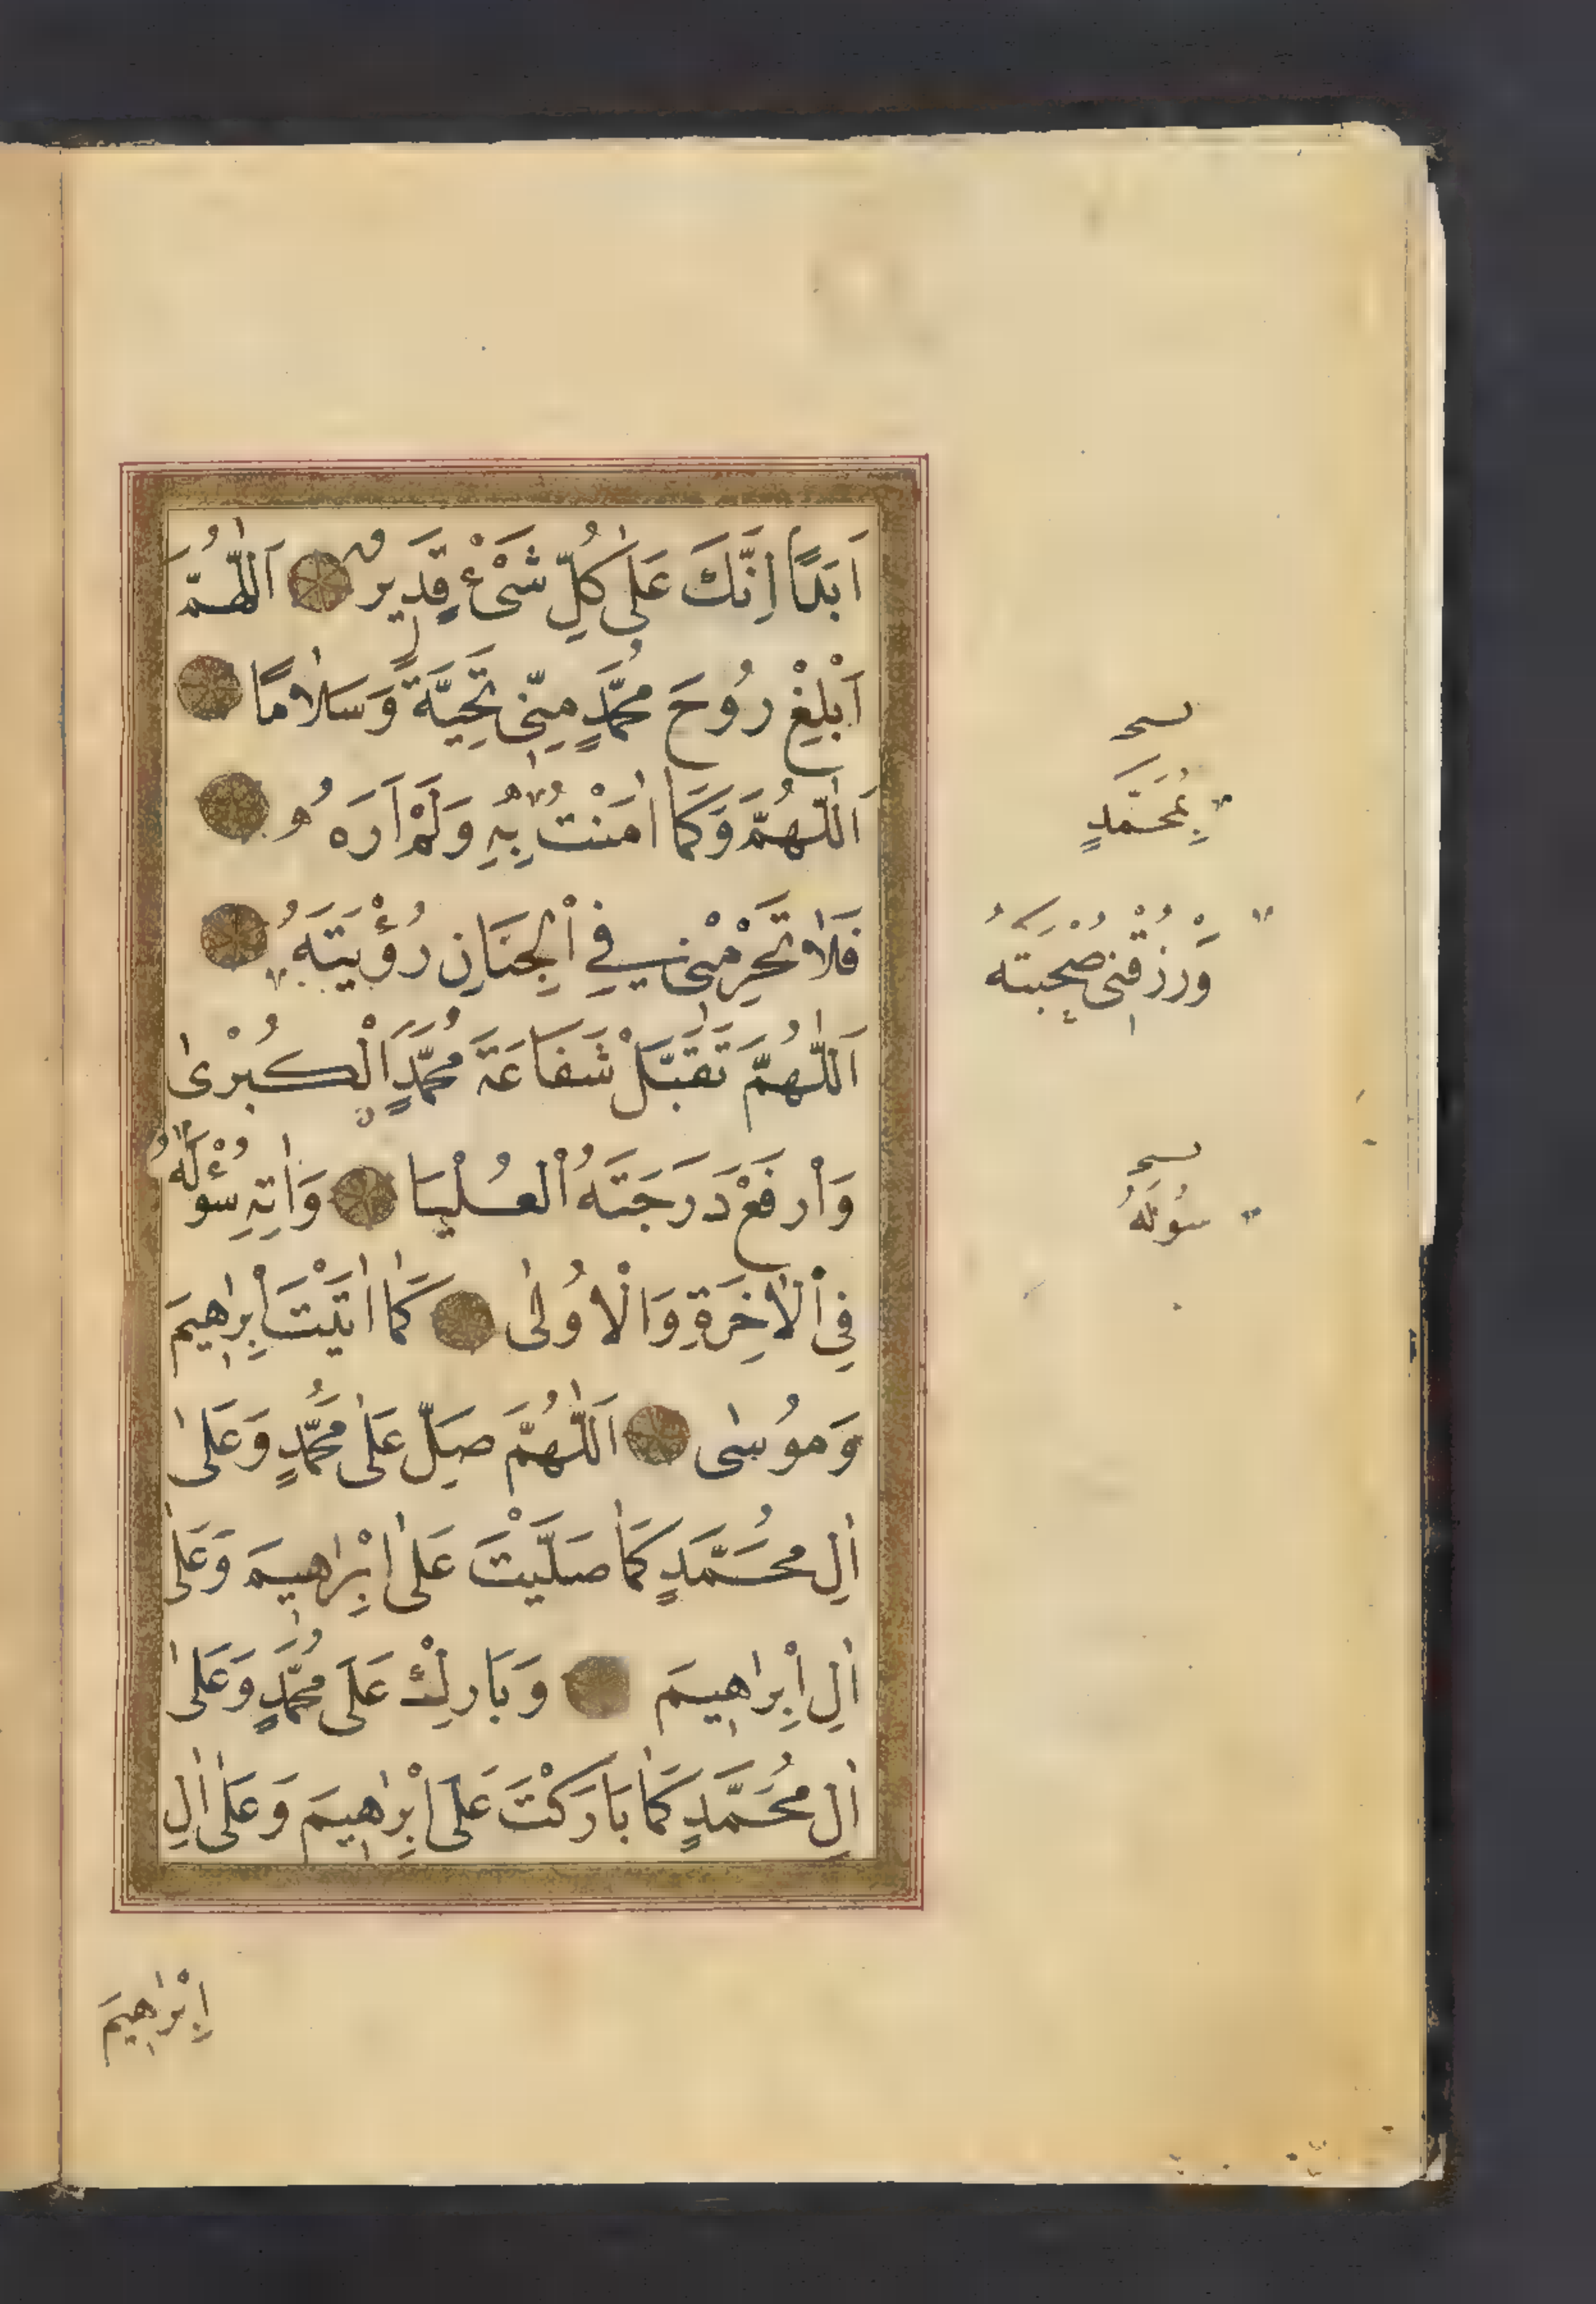 اَبَدًا اِنَّكَ عَلٰى كُلِّ شَىْءٍ قَدِيرٌ اَللّٰهُمَّ
اَبْلِغْ رُوحَ مُحَمَّدٍ مِنِّى تَحِيَّةً وَسَلَامًا
اَللّٰهُمَّ وَكَمَا اٰمَنْتُ بِهٖ وَلَمْ اَرَهُ
فَلَا تَحْرِمْنِى فِي الْجِنَانِ رُؤْيَتَهُ
اَللّٰهُمَّ تَقَبَّلْ شَفَاعَةَ مُحَمَّدٍ الْكُبْرٰى
وَارْفَعْ دَرَجَتَهُ الْعُلْيَا وَاٰتِهٖ سُؤْلَهُ
فِي الْاٰخِرَةِ وَالْاُولٰى كَمَا اٰتَيْتَ اِبْرٰهِيمَ
وَمُوسٰى اَللّٰهُمَّ صَلِّ عَلٰى مُحَمَّدٍ وَعَلٰى
اٰلِ مُحَمَّدٍ كَمَا صَلَّيْتَ عَلٰى اِبْرٰهِيمَ وَعَلٰى
اٰلِ اِبْرٰهِيمَ وَبَارِكْ عَلٰى مُحَمَّدٍ وَعَلٰى
اٰلِ مُحَمَّدٍ كَمَا بَارَكْتَ عَلٰى اِبْرٰهِيمَ وَعَلٰى اٰلِ
اِبْرٰهِيمَ
بِمُحَمَّدٍ
وَرْزُقْنِى صُحْبَتَهُ
سُولَهُ